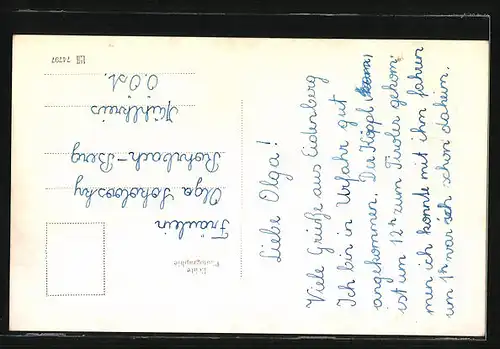 Liebe Olga!
Viele Grüße aus Eidenberg
Ich bin in Urfahr gut
angekommen. Der Köppl
ist um 12h zum Tiroler gekom=
men ich konnte mit ihm fahren
um 1h war ich schon daheim.
Fräulein
Olga Sokolowsky
Rohrbach-Berg
Mühlkreis
O.Öst.
Echte
Photographie
74797